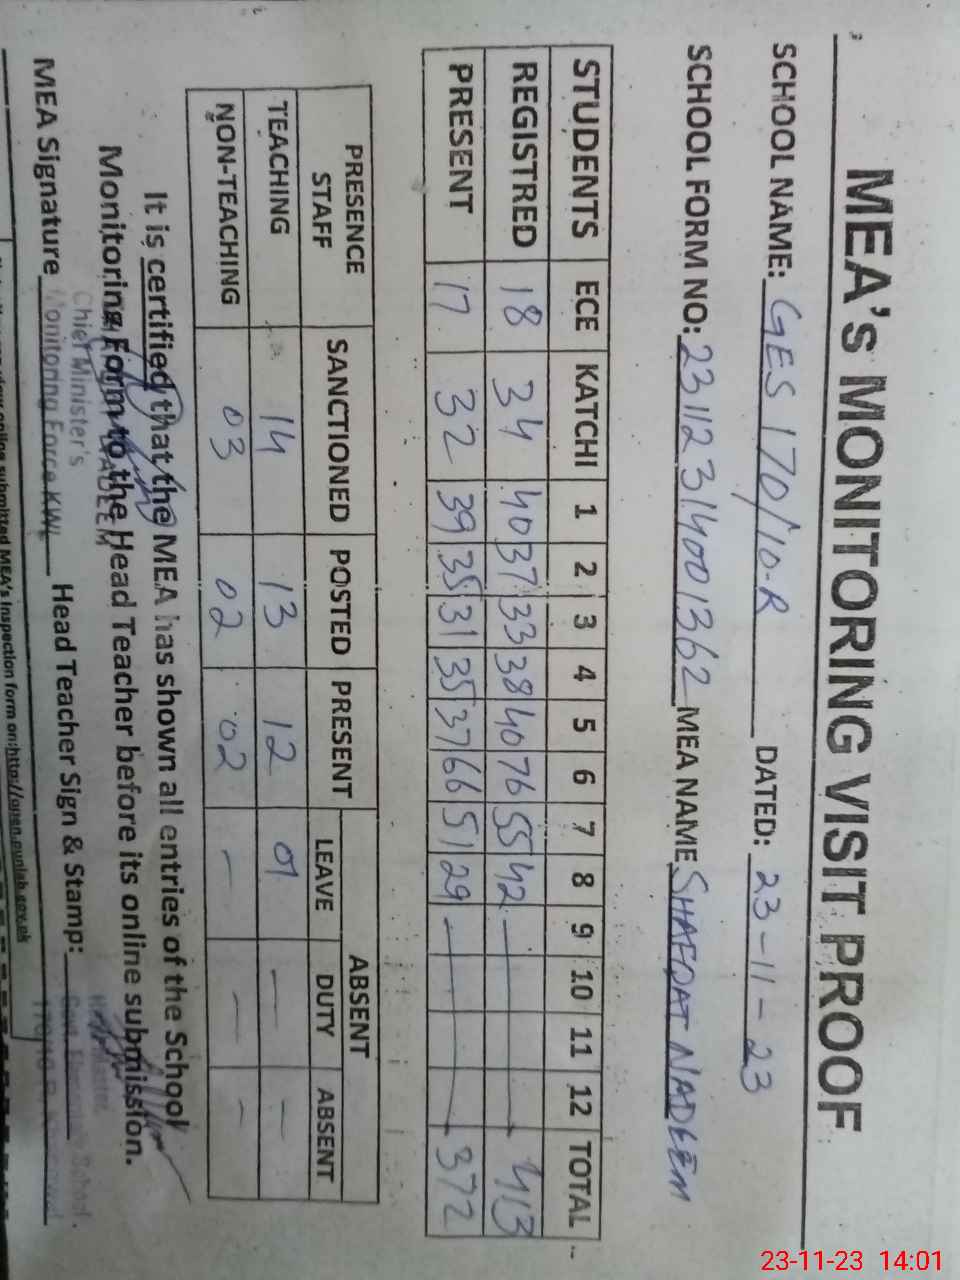 MEA's MONITORING VISIT PROOF
SCHOOL NAME: GES 170/10-R DATED: 23-11-23
SCHOOL FORM NO: 23112314001362 MEA NAME SHAFQAT NADEEM
STUDENTS ECE KATCHI 1 2 3 4 5 6 7 8 9 10 11 12 TOTAL
REGISTRED 18 34 40 37 33 38 40 76 55 42 — 413
PRESENT 17 32 39 35 31 35 37 66 51 29 — 372
PRESENCE STAFF SANCTIONED POSTED PRESENT ABSENT
LEAVE DUTY ABSENT
TEACHING 14 13 12 01 — —
NON-TEACHING 03 02 02 — — —
It is certified that the MEA has shown all entries of the School
Monitoring Form to the Head Teacher before its online submission.
NADEEM
Chief Minister's
Monitoring Force KWL
MEA Signature Head Teacher Sign & Stamp:
Govt. Elementary School
170/10 R
online submitted MEA's Inspection form on:http://open.punjab.gov.pk
23-11-23 14:01